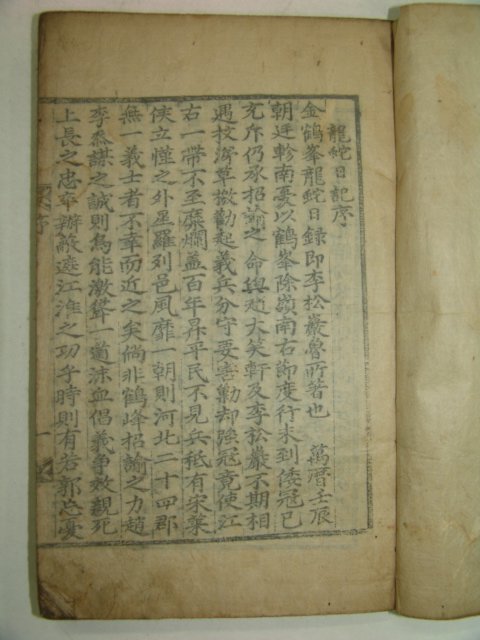 龍蛇日記序
金鶴峯龍蛇日録即李松巖魯所著也 萬曆壬辰
朝廷軫南憂以鶴峯除嶺南右節度行未到倭冦已
充斥仍承招諭之 命與趙大笑軒及李松巖不期相
遇投濟草檄勸起義兵分守要害勦却強冦竟使江
右一帶不至糜爛盖百年昇平民不見兵秪有宋葉
俠立慬之外星羅列邑風靡一朝則河北二十四郡
無一義士者不幸而近之矣倘非鶴峰招諭之力趙
李叅謀之誠則烏能激聳一道沫血倡義争效親死
上長之忠卒辦蔽遮江淮之功乎時則有若郭忘憂
序
一